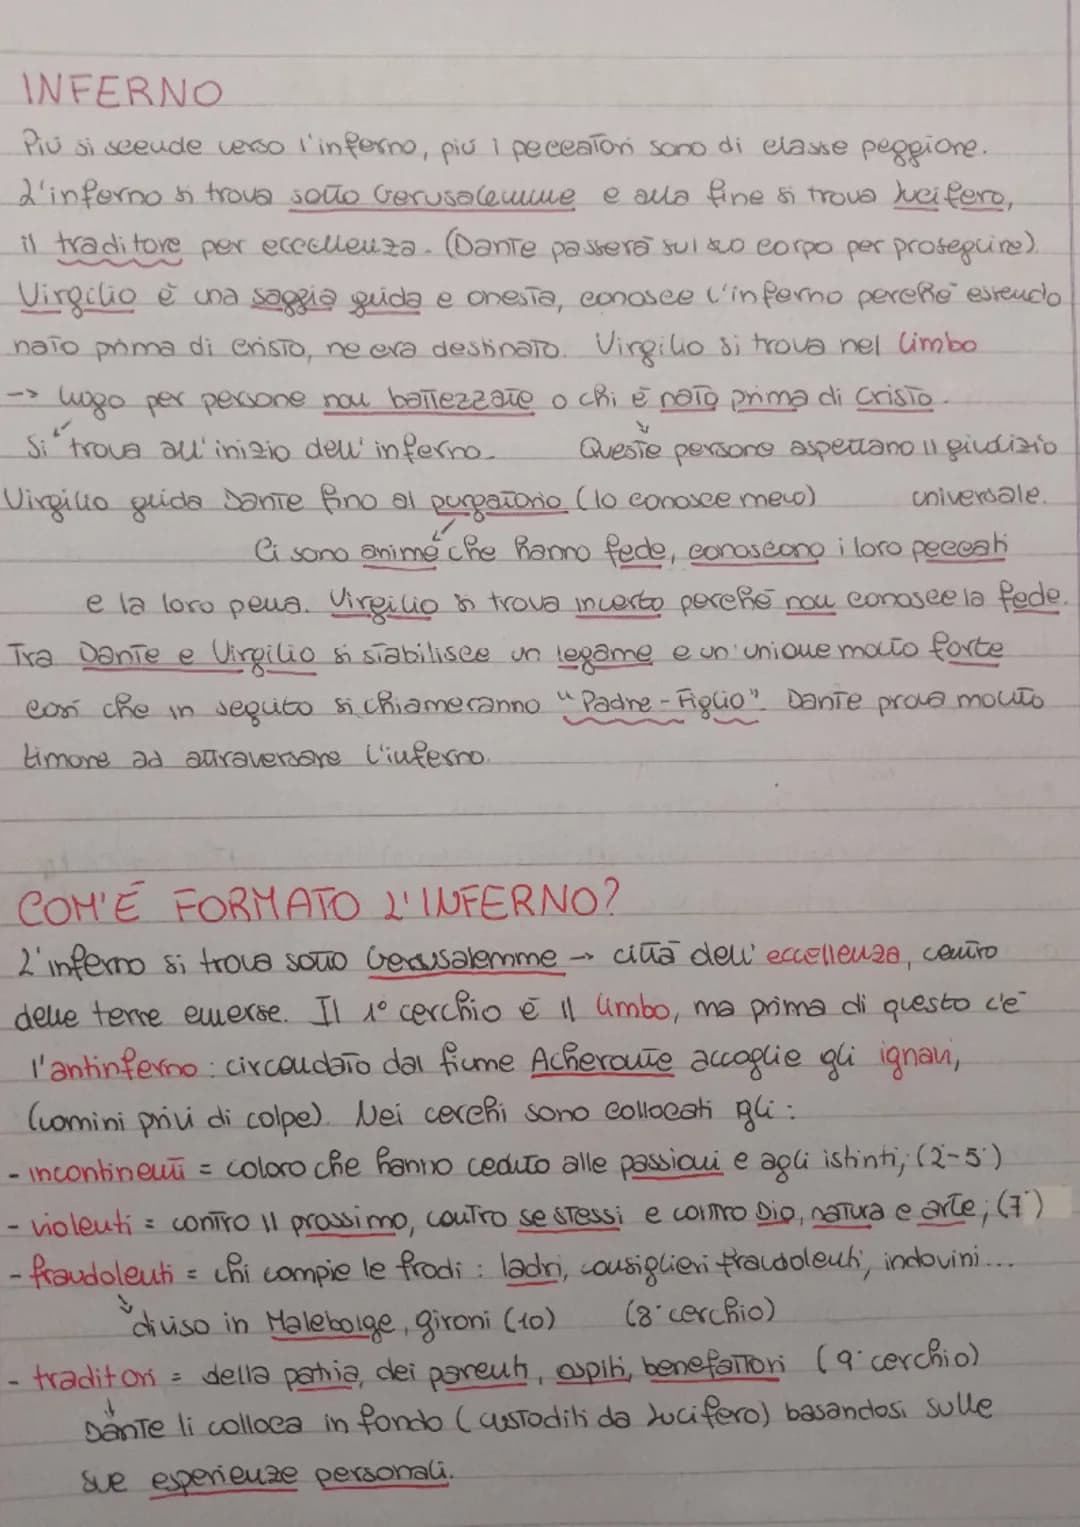 INFERNO
Più si scende verso l'inferno, più i peccatori sono di classe peggiore.
L'inferno si trova sotto Gerusalemme e alla fine si trova Lucifero,
il traditore per eccellenza. (Dante passerà sul suo corpo per proseguire).
Virgilio è una saggia guida e onesta, conosce l'inferno perchè essendo
nato prima di Cristo, ne era destinato. Virgilio si trova nel limbo
-> luogo per persone non battezzate o chi è nato prima di Cristo.
Si trova all'inizio dell'inferno. Queste persone aspettano il giudizio
universale.
Virgilio guida Dante fino al purgatorio (lo conosce meno)
Ci sono anime che hanno fede, conoscono i loro peccati
e la loro pena. Virgilio si trova incerto perchè non conosce la fede.
Tra Dante e Virgilio si stabilisce un legame e un'unione molto forte
così che in seguito si chiameranno "Padre-Figlio". Dante prova molto
timore ad attraversare l'inferno.
COM'È FORMATO L'INFERNO?
L'inferno si trova sotto Gerusalemme → città dell'eccellenza, centro
delle terre emerse. Il 1° cerchio è il limbo, ma prima di questo c'è
l'antinferno: circondato dal fiume Acheronte accoglie gli ignavi,
(uomini privi di colpe). Nei cerchi sono collocati gli:
- incontinenti = coloro che hanno ceduto alle passioni e agli istinti; (2°-5°)
- violenti = contro il prossimo, contro se stessi e contro Dio, natura e arte; (7°)
- fraudolenti = chi compie le frodi: ladri, consiglieri fraudolenti, indovini...
diviso in Malebolge, gironi (10) (8° cerchio)
- traditori = della patria, dei parenti, ospiti, benefattori (9° cerchio)
Dante li colloca in fondo (custoditi da Lucifero) basandosi sulle
sue esperienze personali.